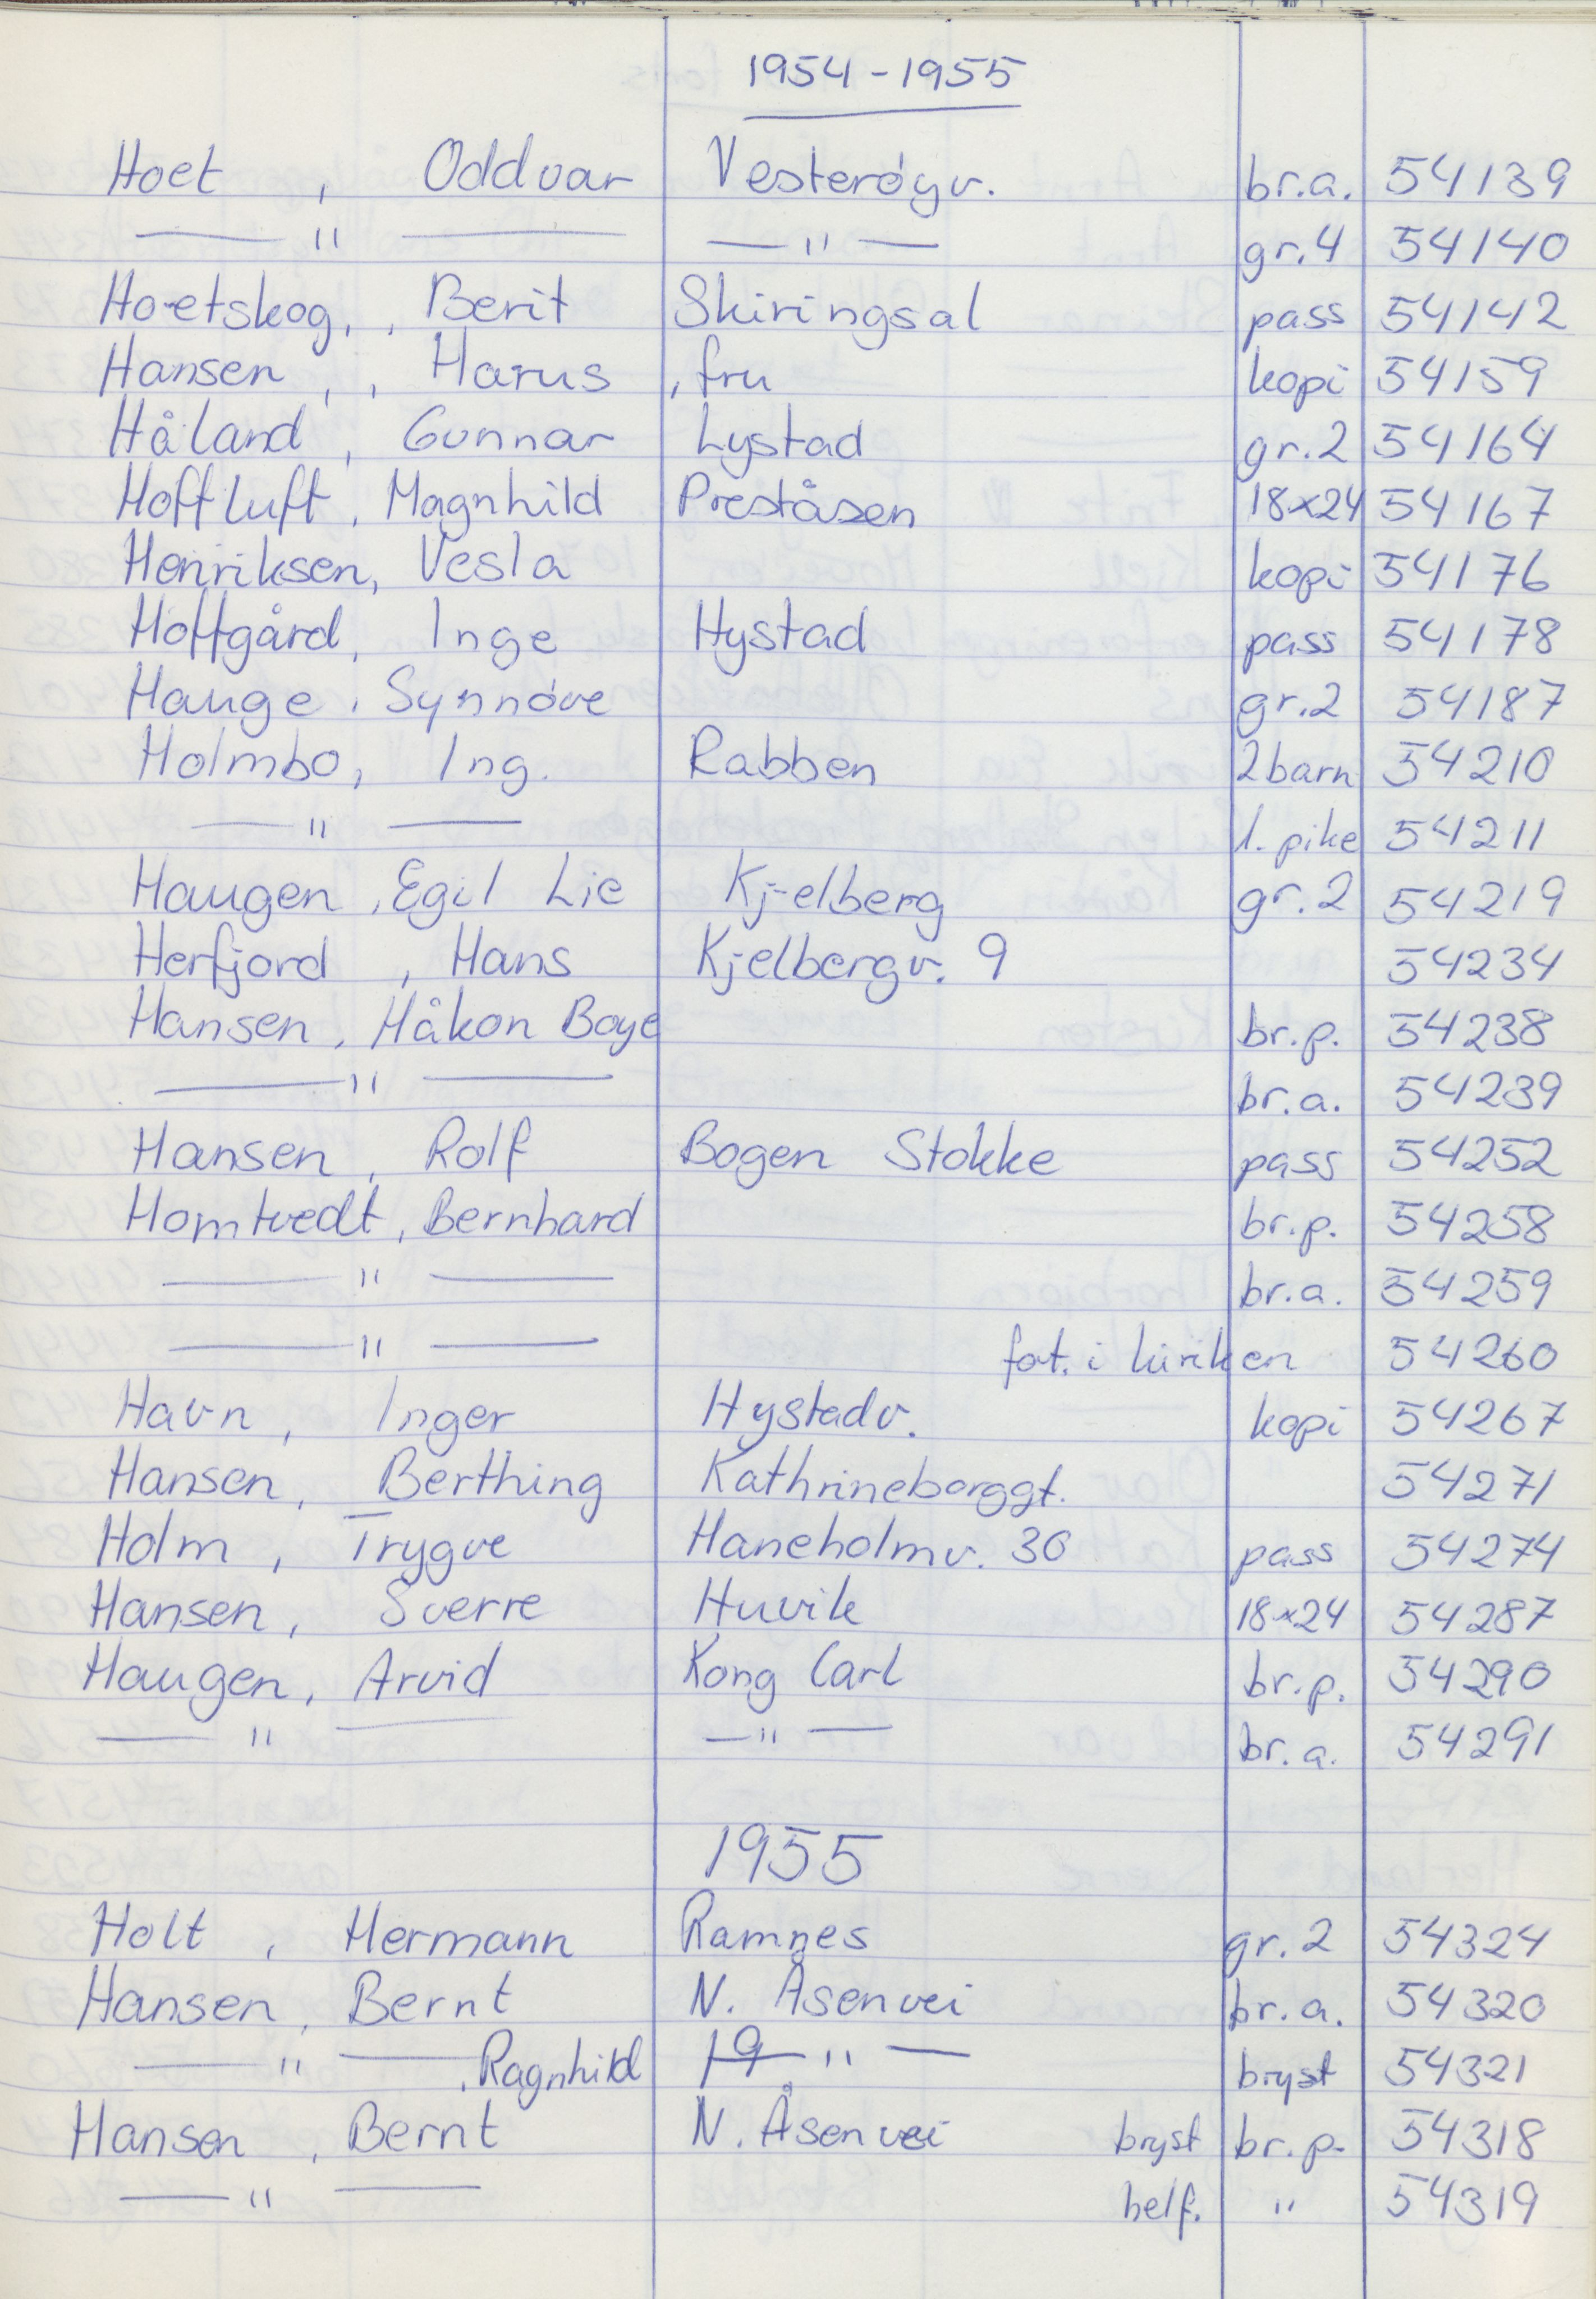 1954-1955
Hoet , Oddvar Vesterøyv. br.a. 54139
— " — — " — gr.4 54140
Hoetskog, , Berit Skiringsal pass 54142
Hansen , , Harus , fru kopi 54159
Håland , Gunnar Lystad gr.2 54164
Hoftluft, Magnhild Preståsen 18x24 54167
Henriksen, Vesla kopi 54176
Hoffgård, Inge Hystad pass 54178
Hauge, Synnøve gr.2 54187
Holmbo, Ing. Rabben 2barn 54210
— " — 1. pike 54211
Haugen, Egil Lie Kjelberg gr.2 54219
Herfjord , Hans Kjelbergv. 9 54234
Hansen, Håkon Boye br.p. 54238
— " — br.a. 54239
Hansen, Rolf Bogen Stokke pass 54252
Homtvedt, Bernhard br.p. 54258
— " — br.a. 54259
— " — fot. i kirken 54260
Havn, Inger Hystadv. kopi 54267
Hansen, Berthing Kathrineborggt. 54271
Holm, Trygve Haneholmv. 30 pass 54274
Hansen, Sverre Huvik 18x24 54287
Haugen, Arvid Kong Carl br.p. 54290
— " — — " — br.a. 54291
1955
Holt , Hermann Ramnes gr.2 54324
Hansen, Bernt N. Åsenvei br.a. 54320
— " — , Ragnhild — " — bryst 54321
Hansen , Bernt N. Åsenvei bryst br.p. 54318
— " — helf. " 54319